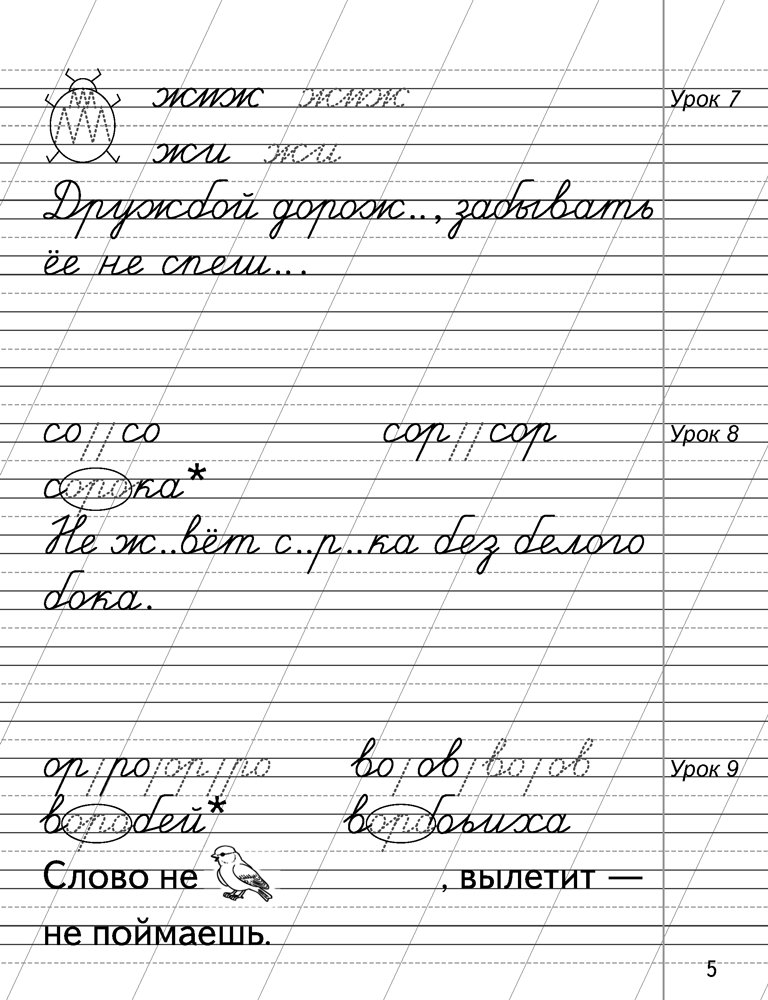 жмж жмж Урок 7
жи жи
Дружбой дорож.., забывать
ёе не спеш...
со со сор сор Урок 8
сорока*
Не ж..вёт с..р..ка без белого
бока.
ор ро ор ро во ов во ов Урок 9
воробей* воробьиха
Слово не , вылетит —
не поймаешь.
5